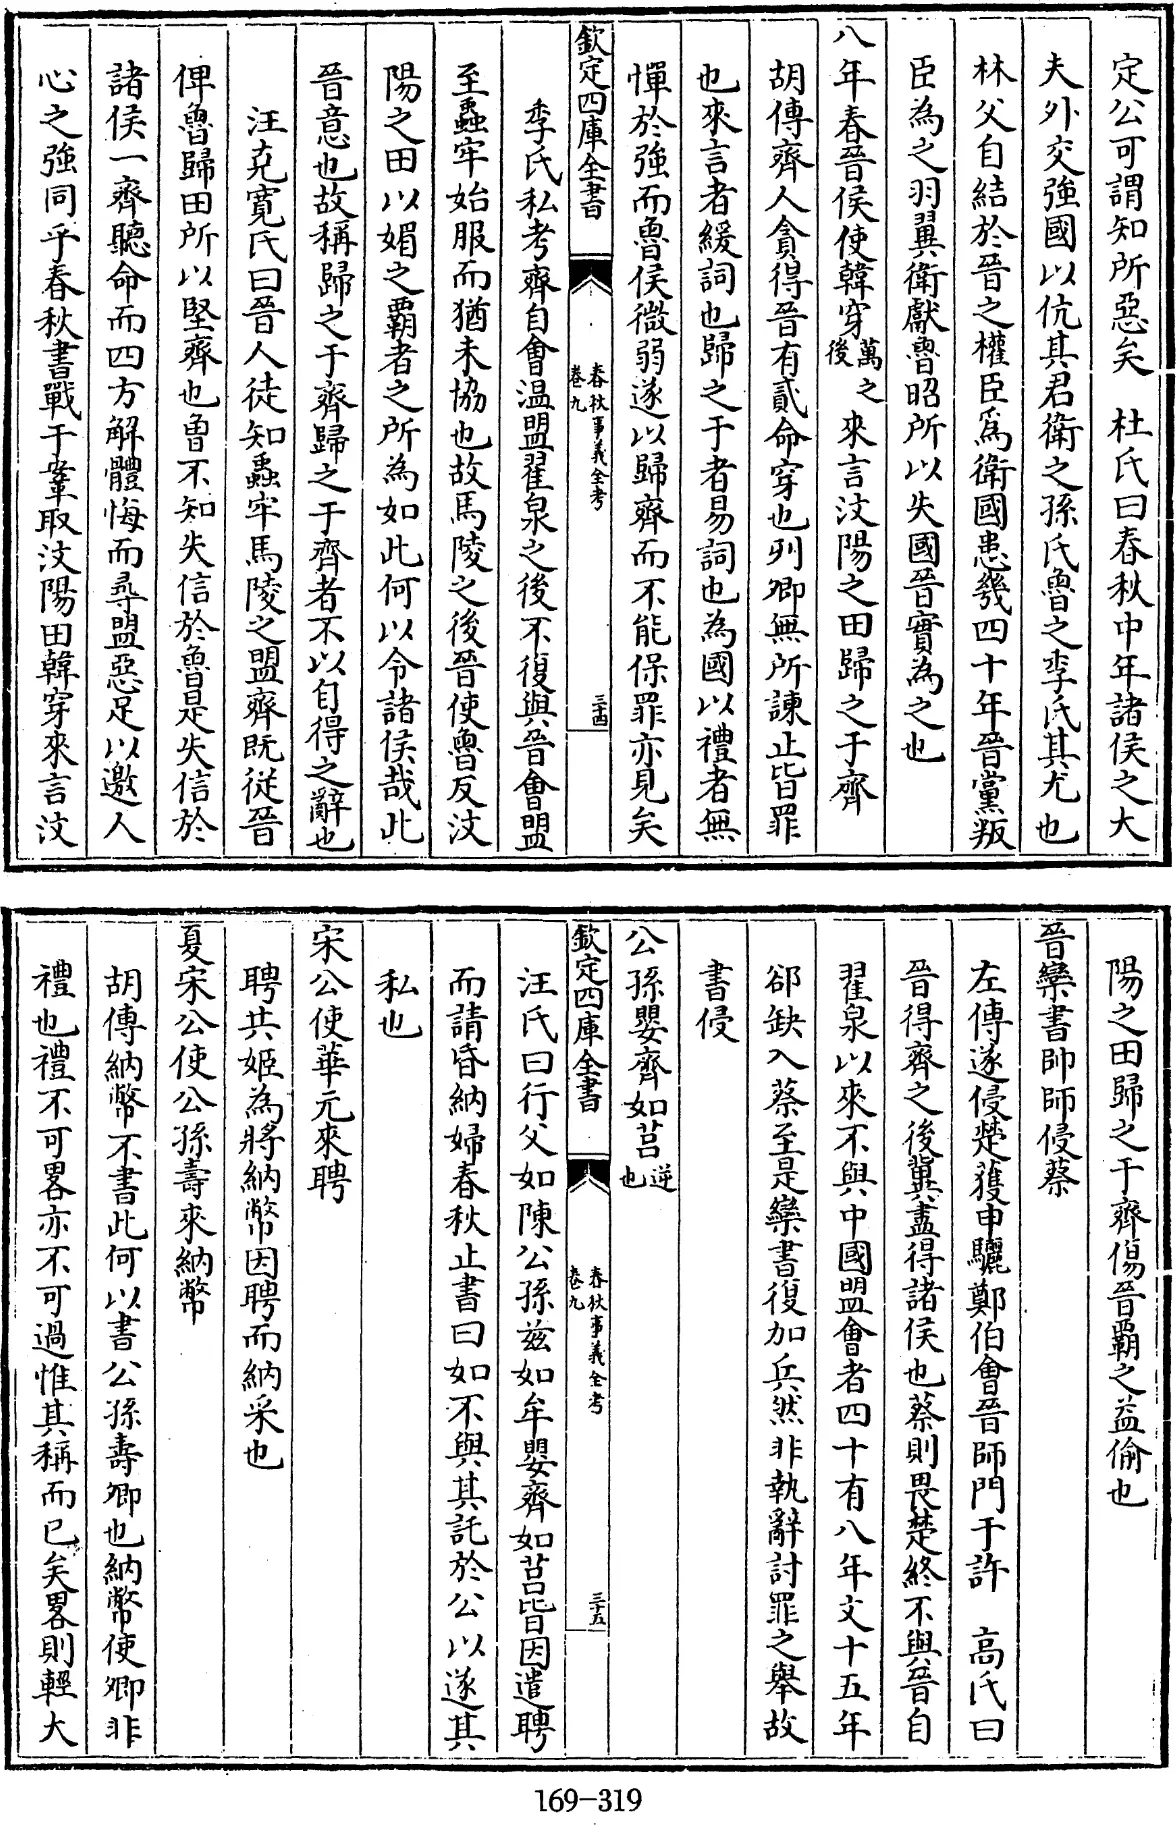 定公可謂知所惡矣　杜氏曰春秋中年諸侯之大
夫外交強國以伉其君衛之孫氏魯之季氏其尤也
林父自結於晉之權臣爲衛國患幾四十年晉黨叛
臣為之羽翼衛獻魯昭所以失國晉實為之也
八年春晉侯使韓穿萬之後來言汶陽之田歸之于齊
胡傳齊人貪得晉有貳命穿也列卿無所諫止皆罪
也來言者緩詞也歸之于者易詞也為國以禮者無
憚於強而魯侯微弱遂以歸齊而不能保罪亦見矣
欽定四庫全書　春秋事義全考卷九　三十四
季氏私考齊自會温盟翟泉之後不復與晉會盟
至蟲牢始服而猶未協也故馬陵之後晉使魯反汶
陽之田以媚之霸者之所為如此何以令諸侯哉此
晉意也故稱歸之于齊歸之于齊者不以自得之辭也
汪克寬氏曰晉人徒知蟲牢馬陵之盟齊既從晉
俾魯歸田所以堅齊也曾不知失信於魯是失信於
諸侯一齊聽命而四方解體悔而尋盟惡足以邀人
心之強同乎春秋書戰于鞌取汶陽田韓穿來言汶
陽之田歸之于齊傷晉霸之益偷也
晉欒書帥師侵蔡
左傳遂侵楚獲申驪鄭伯會晉師門于許　高氏曰
晉得齊之後冀盡得諸侯也蔡則畏楚終不與晉自
翟泉以來不與中國盟會者四十有八年文十五年
郤缺入蔡至是欒書復加兵然非執辭討罪之舉故
書侵
公孫嬰齊如莒逆也
欽定四庫全書　春秋事義全考卷九　三十五
汪氏曰行父如陳公孫茲如牟嬰齊如莒皆因遣聘
而請昏納婦春秋止書曰如不與其託於公以遂其
私也
宋公使華元來聘
聘共姬為將納幣因聘而納采也
夏宋公使公孫壽來納幣
胡傳納幣不書此何以書公孫壽卿也納幣使卿非
禮也禮不可畧亦不可過惟其稱而已矣畧則輕大
169-319